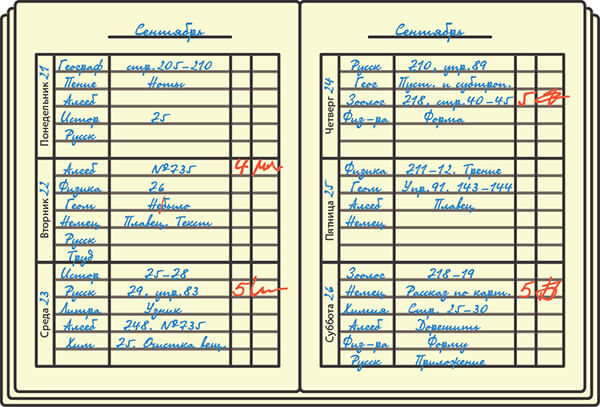 Сентябрь
Понедельник 21
Географ стр. 205-210
Пение Ноты
Алгеб
Истор 25
Русск
Вторник 22
Алгеб №735 4
Физика 26
Геом Не было
Немец Плавец. Текст
Русск
Труд
Среда 23
Истор 25-28
Русск 29. упр. 83 5
Литра Узник
Алгеб 248. №735
Хим 25. Очистка вещ.
Сентябрь
Четверг 24
Русск 210. упр. 89
Геог Пуст. и субтроп.
Зоолог 218. стр. 40-45 5
Физ-ра Форма
Пятница 25
Физика 211-12. Трение
Геом Упр. 91. 143-144
Алгеб Плавец
Немец
Суббота 26
Зоолог 218-19
Немец Рассказ по карт. 5
Химия Стр. 25-30
Алгеб Дорешить
Физ-ра Форму
Русск Приложение